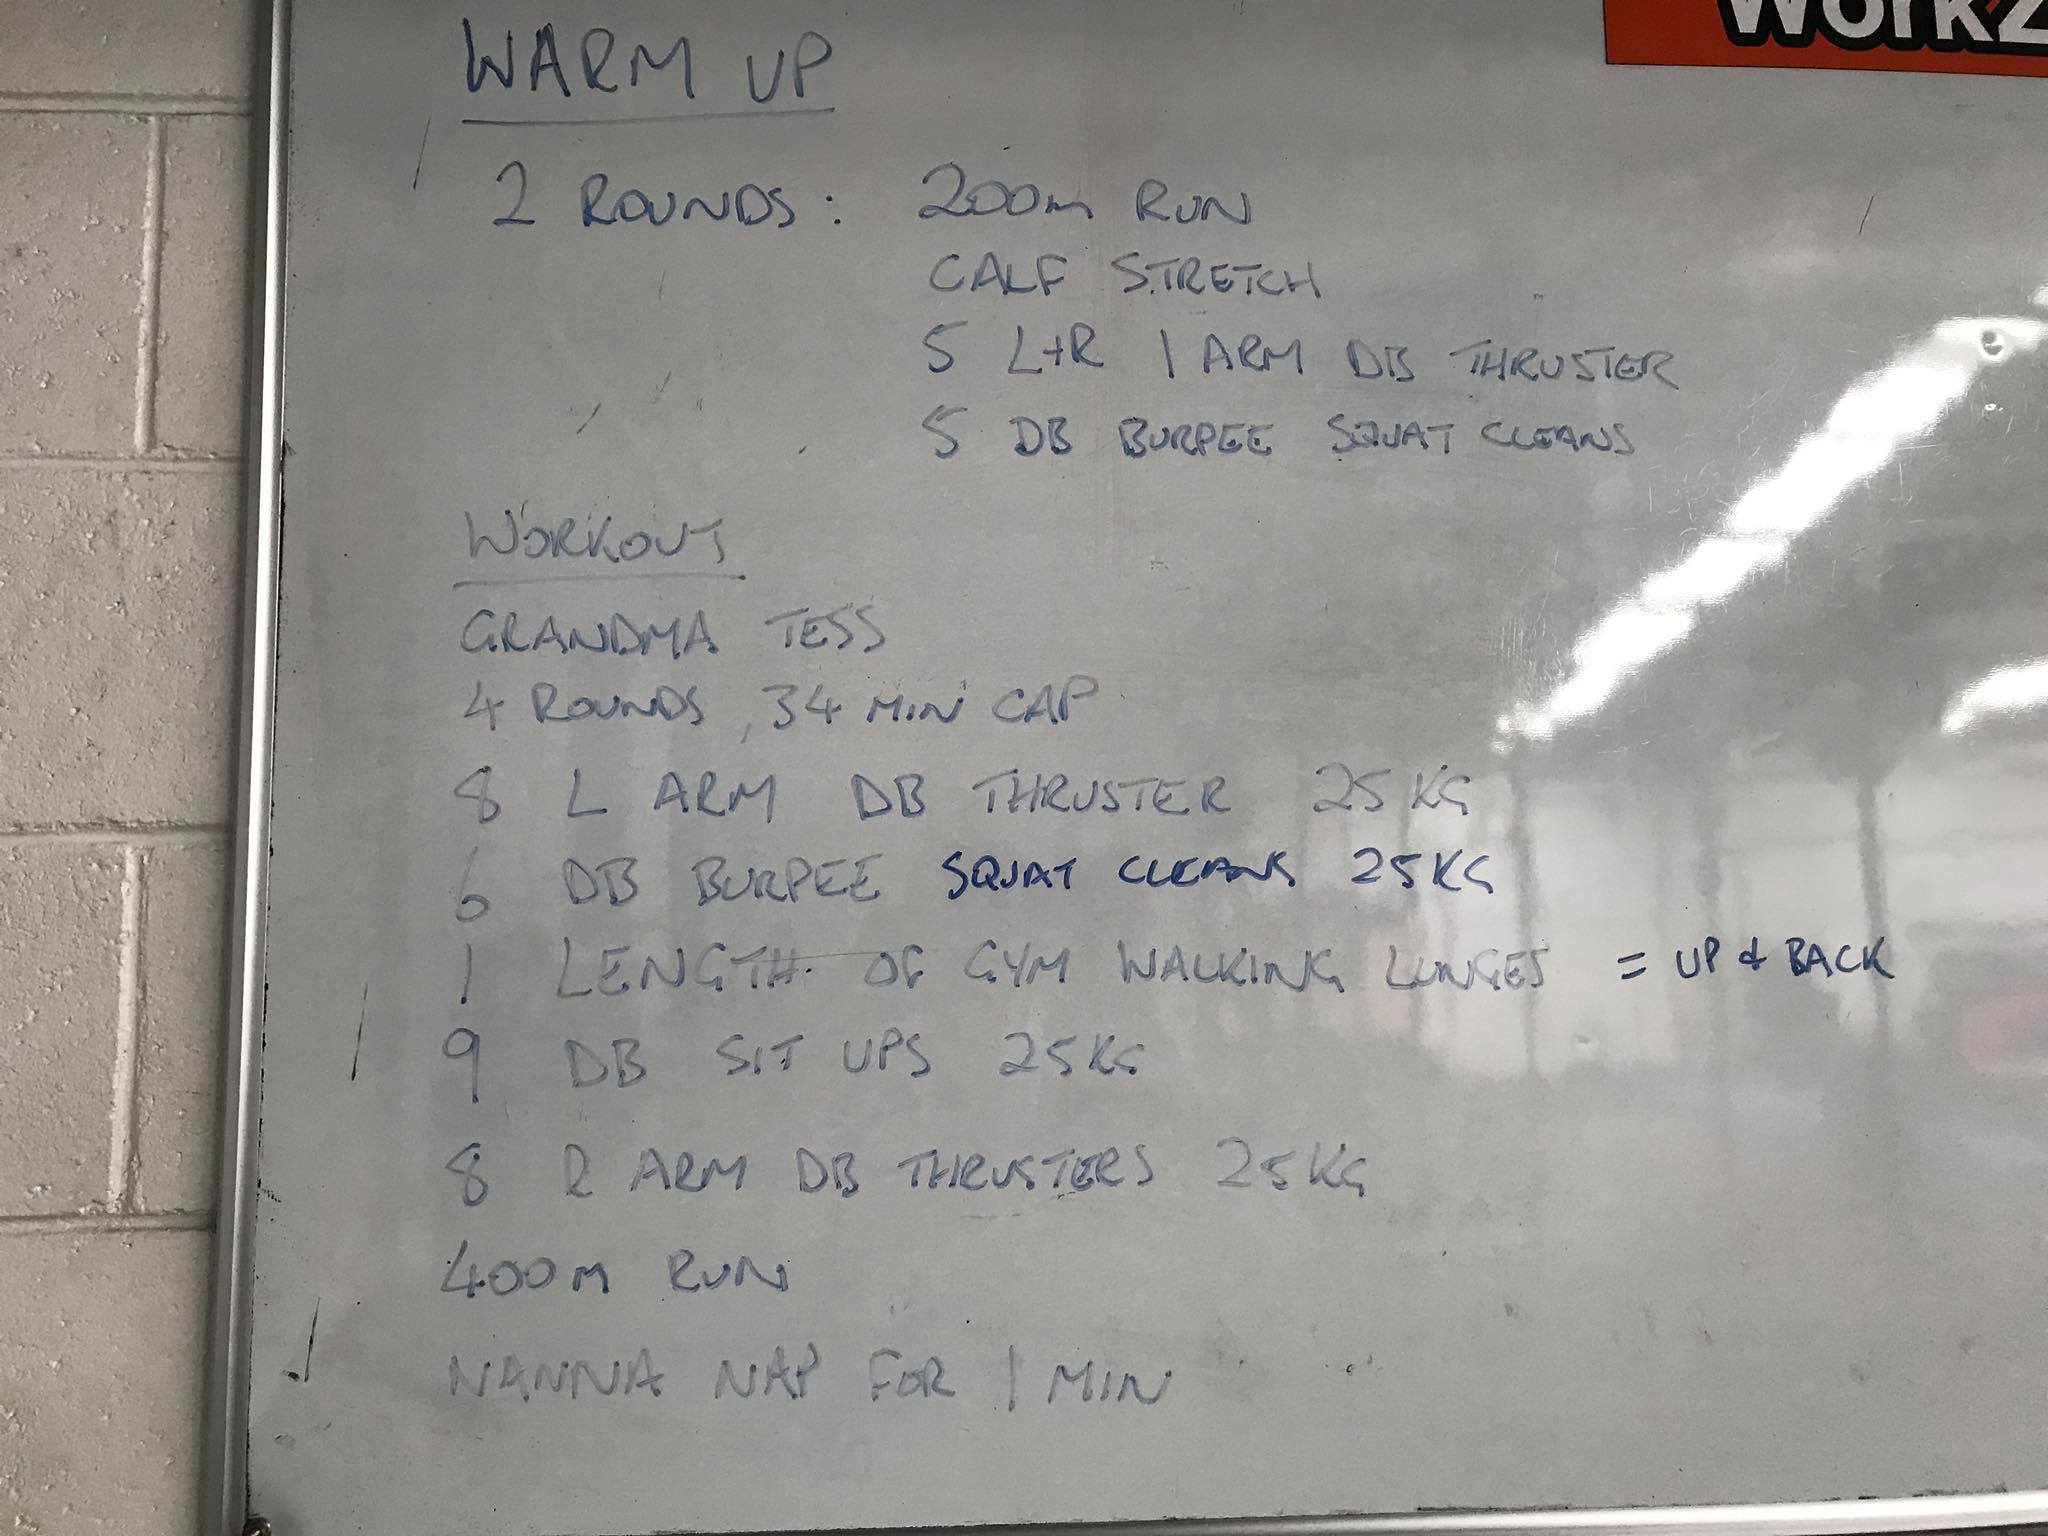 WorkZ
WARM UP
2 ROUNDS: 200m RUN
CALF STRETCH
5 L+R 1 ARM DB THRUSTER
5 DB BURPEE SQUAT CLEANS
WORKOUT
GRANDMA TESS
4 ROUNDS, 34 MIN CAP
8 L ARM DB THRUSTER 25KG
6 DB BURPEE SQUAT CLEANS 25KG
1 LENGTH OF GYM WALKING LUNGES = UP & BACK
9 DB SIT UPS 25KG
8 R ARM DB THRUSTERS 25KG
400m RUN
NANNA NAP FOR 1 MIN